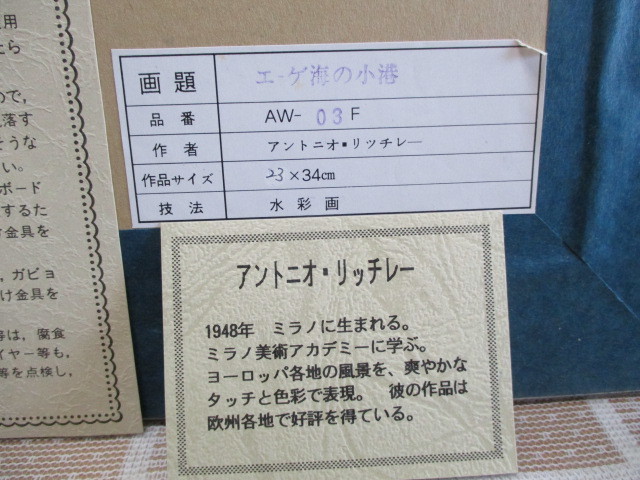 用
たら
ので,
落す
そうな
い。
ボード
するた
金具を
, ガビョ
け金具を
等は, 腐食
イヤー等も,
等を点検し,
画題 エーゲ海の小港
品番 AW-03F
作者 アントニオ・リッチレー
作品サイズ 23×34cm
技法 水彩画
アントニオ・リッチレー
1948年 ミラノに生まれる。
ミラノ美術アカデミーに学ぶ。
ヨーロッパ各地の風景を、爽やかな
タッチと色彩で表現。 彼の作品は
欧州各地で好評を得ている。